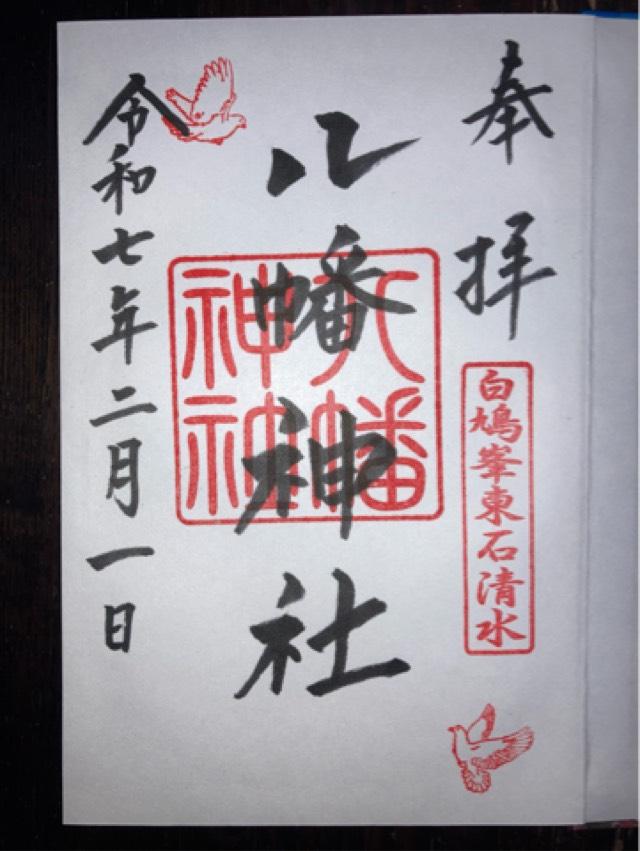 奉拝
白鳩峯東石清水
八幡神社
八幡
神社
令和七年二月一日